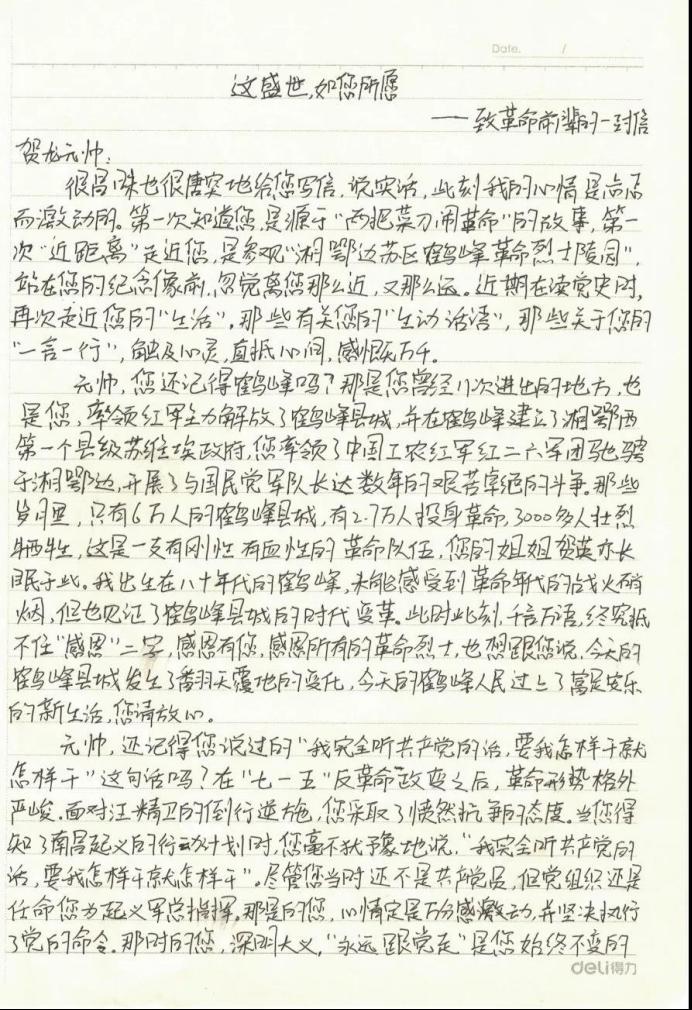 Date. /
这盛世,如您所愿
——致革命前辈的一封信
贺龙元帅:
很冒昧也很唐突地给您写信,说实话,此刻我的心情是忐忑
而激动的。第一次知道您,是源于“两把菜刀闹革命”的故事,第一
次“近距离”走近您,是参观“湘鄂边苏区鹤峰革命烈士陵园”,
站在您的纪念像前,忽觉离您那么近,又那么远。近期在读党史时,
再次走近您的“生活”。那些有关您的“生动话语”,那些关于您的
“一言一行”,触及心灵,直抵心间,感慨万千。
元帅,您还记得鹤峰吗?那是您曾经八次进出的地方,也
是您,率领红军主力解放了鹤峰县城,并在鹤峰建立了湘鄂西
第一个县级苏维埃政府,您率领了中国工农红军红二六军团驰骋
于湘鄂边,开展了与国民党军队长达数年的艰苦卓绝的斗争。那些
岁月里,只有6万人的鹤峰县城,有2.7万人投身革命,3000多人壮烈
牺牲,这是一支有刚性有血性的革命队伍,您的姐姐贺英亦长
眠于此。我出生在八十年代的鹤峰,未能感受到革命年代的战火硝
烟,但也见证了鹤峰县城的时代变革。此时此刻,千言万语,终究抵
不住“感恩”二字,感恩有您,感恩所有的革命烈士,也想跟您说,今天的
鹤峰县城发生了番羽天覆地的变化,今天的鹤峰人民过上了富足安乐
的新生活,您请放心。
元帅,还记得您说过的“我完全听共产党的话,要我怎样干就
怎样干”这句话吗?在“七一五”反革命政变之后,革命形势格外
严峻。面对汪精卫的倒行逆施,您采取了愤然抗争的态度。当您得
知了南昌起义的行动计划时,您毫不犹予象地说,“我完全听共产党的
话,要我怎样干就怎样干”。尽管您当时还不是共产党员,但党组织还是
任命您为起义军总指挥。那是的您,心情定是万分感激动,并坚决执行
了党的命令。那时的您,深明大义,“永远跟党走”是您始终不变的
deli得力